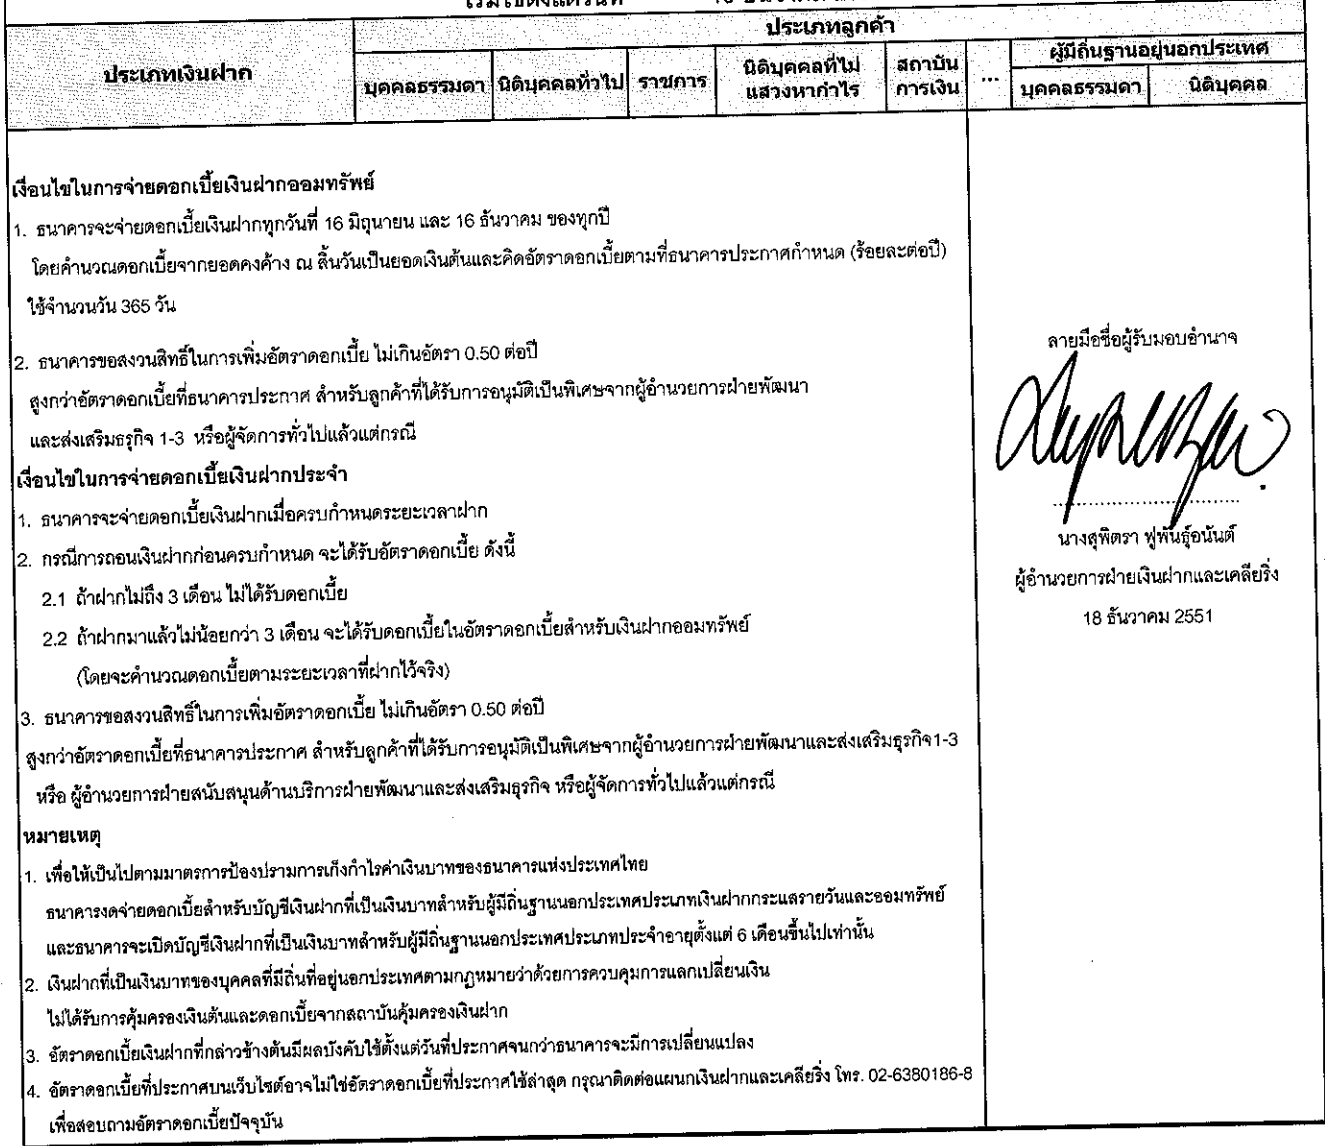 ประเภทลูกค้า
ประเภทเงินฝาก
บุคคลธรรมดา
นิติบุคคลทั่วไป
ราชการ
นิติบุคคลที่ไม่
แสวงหากำไร
สถาบัน
การเงิน
...
ผู้มีถิ่นฐานอยู่นอกประเทศ
บุคคลธรรมดา
นิติบุคคล
เงื่อนไขในการจ่ายดอกเบี้ยเงินฝากออมทรัพย์
1. ธนาคารจะจ่ายดอกเบี้ยเงินฝากทุกวันที่ 16 มิถุนายน และ 16 ธันวาคม ของทุกปี
โดยคำนวณดอกเบี้ยจากยอดคงค้าง ณ สิ้นวันเป็นยอดเงินต้นและคิดอัตราดอกเบี้ยตามที่ธนาคารประกาศกำหนด (ร้อยละต่อปี)
ใช้จำนวนวัน 365 วัน
2. ธนาคารขอสงวนสิทธิ์ในการเพิ่มอัตราดอกเบี้ย ไม่เกินอัตรา 0.50 ต่อปี
สูงกว่าอัตราดอกเบี้ยที่ธนาคารประกาศ สำหรับลูกค้าที่ได้รับการอนุมัติเป็นพิเศษจากผู้อำนวยการฝ่ายพัฒนา
และส่งเสริมธรุกิจ 1-3 หรือผู้จัดการทั่วไปแล้วแต่กรณี
เงื่อนไขในการจ่ายดอกเบี้ยเงินฝากประจำ
1. ธนาคารจะจ่ายดอกเบี้ยเงินฝากเมื่อครบกำหนดระยะเวลาฝาก
2. กรณีการถอนเงินฝากก่อนครบกำหนด จะได้รับอัตราดอกเบี้ย ดังนี้
2.1 ถ้าฝากไม่ถึง 3 เดือน ไม่ได้รับดอกเบี้ย
2.2 ถ้าฝากมาแล้วไม่น้อยกว่า 3 เดือน จะได้รับดอกเบี้ยในอัตราดอกเบี้ยสำหรับเงินฝากออมทรัพย์
(โดยจะคำนวณดอกเบี้ยตามระยะเวลาที่ฝากไว้จริง)
3. ธนาคารขอสงวนสิทธิ์ในการเพิ่มอัตราดอกเบี้ย ไม่เกินอัตรา 0.50 ต่อปี
สูงกว่าอัตราดอกเบี้ยที่ธนาคารประกาศ สำหรับลูกค้าที่ได้รับการอนุมัติเป็นพิเศษจากผู้อำนวยการฝ่ายพัฒนาและส่งเสริมธุรกิจ1-3
หรือ ผู้อำนวยการฝ่ายสนับสนุนด้านบริการฝ่ายพัฒนาและส่งเสริมธุรกิจ หรือผู้จัดการทั่วไปแล้วแต่กรณี
หมายเหตุ
1. เพื่อให้เป็นไปตามมาตรการป้องปรามการเก็งกำไรค่าเงินบาทของธนาคารแห่งประเทศไทย
ธนาคารงดจ่ายดอกเบี้ยสำหรับบัญชีเงินฝากที่เป็นเงินบาทสำหรับผู้มีถิ่นฐานนอกประเทศประเภทเงินฝากกระแสรายวันและออมทรัพย์
และธนาคารจะเปิดบัญชีเงินฝากที่เป็นเงินบาทสำหรับผู้มีถิ่นฐานนอกประเทศประเภทประจำอายุตั้งแต่ 6 เดือนขึ้นไปเท่านั้น
2. เงินฝากที่เป็นเงินบาทของบุคคลที่มีถิ่นที่อยู่นอกประเทศตามกฎหมายว่าด้วยการควบคุมการแลกเปลี่ยนเงิน
ไม่ได้รับการคุ้มครองเงินต้นและดอกเบี้ยจากสถาบันคุ้มครองเงินฝาก
3. อัตราดอกเบี้ยเงินฝากที่กล่าวข้างต้นมีผลบังคับใช้ตั้งแต่วันที่ประกาศจนกว่าธนาคารจะมีการเปลี่ยนแปลง
4. อัตราดอกเบี้ยที่ประกาศบนเว็บไซต์อาจไม่ใช่อัตราดอกเบี้ยที่ประกาศใช้ล่าสุด กรุณาติดต่อแผนกเงินฝากและเคลียริ่ง โทร. 02-6380186-8
เพื่อสอบถามอัตราดอกเบี้ยปัจจุบัน
ลายมือชื่อผู้รับมอบอำนาจ
นางสุพิตรา ฟูพันธุ์อนันต์
ผู้อำนวยการฝ่ายเงินฝากและเคลียริ่ง
18 ธันวาคม 2551